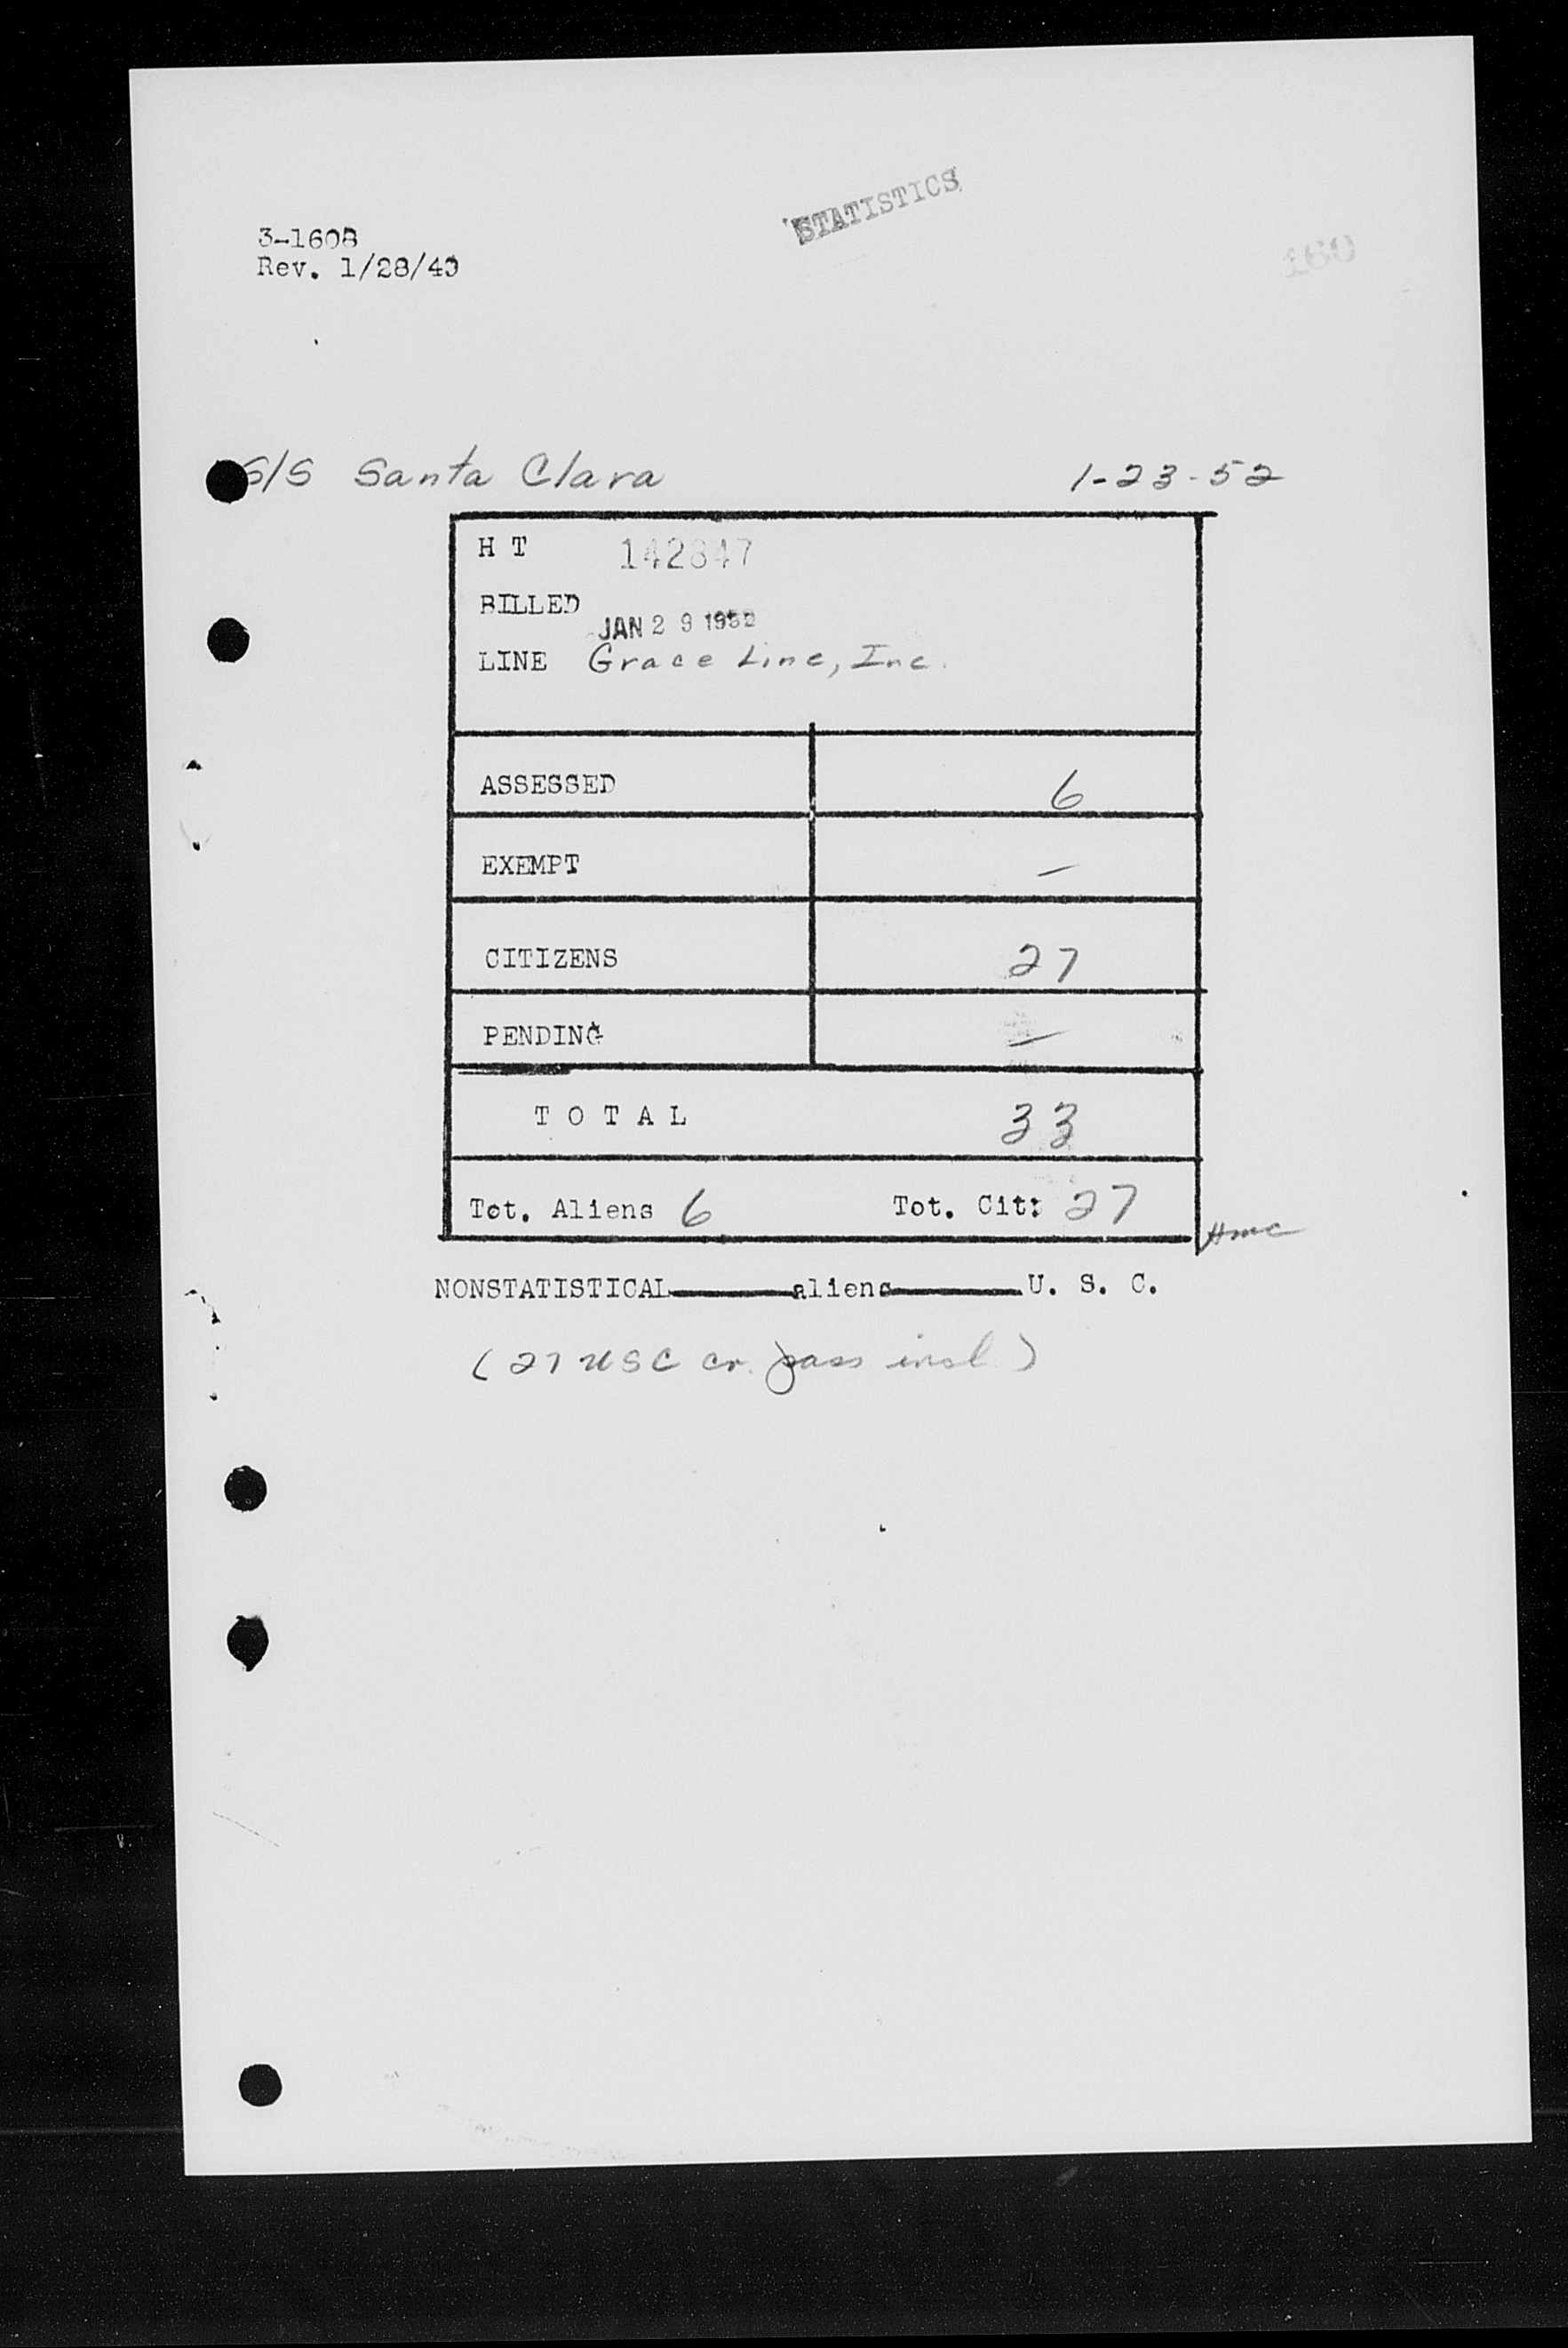 STATISTICS
3-1608
160
Rev. 1/28/49
S/S Santa Clara 1-23-52
H T 142847
BILLED
JAN 29 1952
LINE Grace Line, Inc.
ASSESSED 6
EXEMPT —
CITIZENS 27
PENDING —
T O T A L 33
Tot. Aliens 6 Tot. Cit: 27
Hmc
NONSTATISTICAL aliens U. S. C.
(27 USC cr. pass incl)